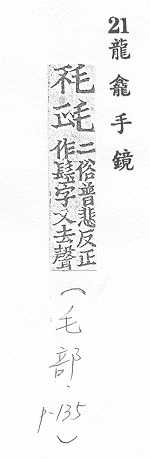 21 龍龕手鏡
二俗普悲反正
作髬字又去聲
(毛部.
p-135)